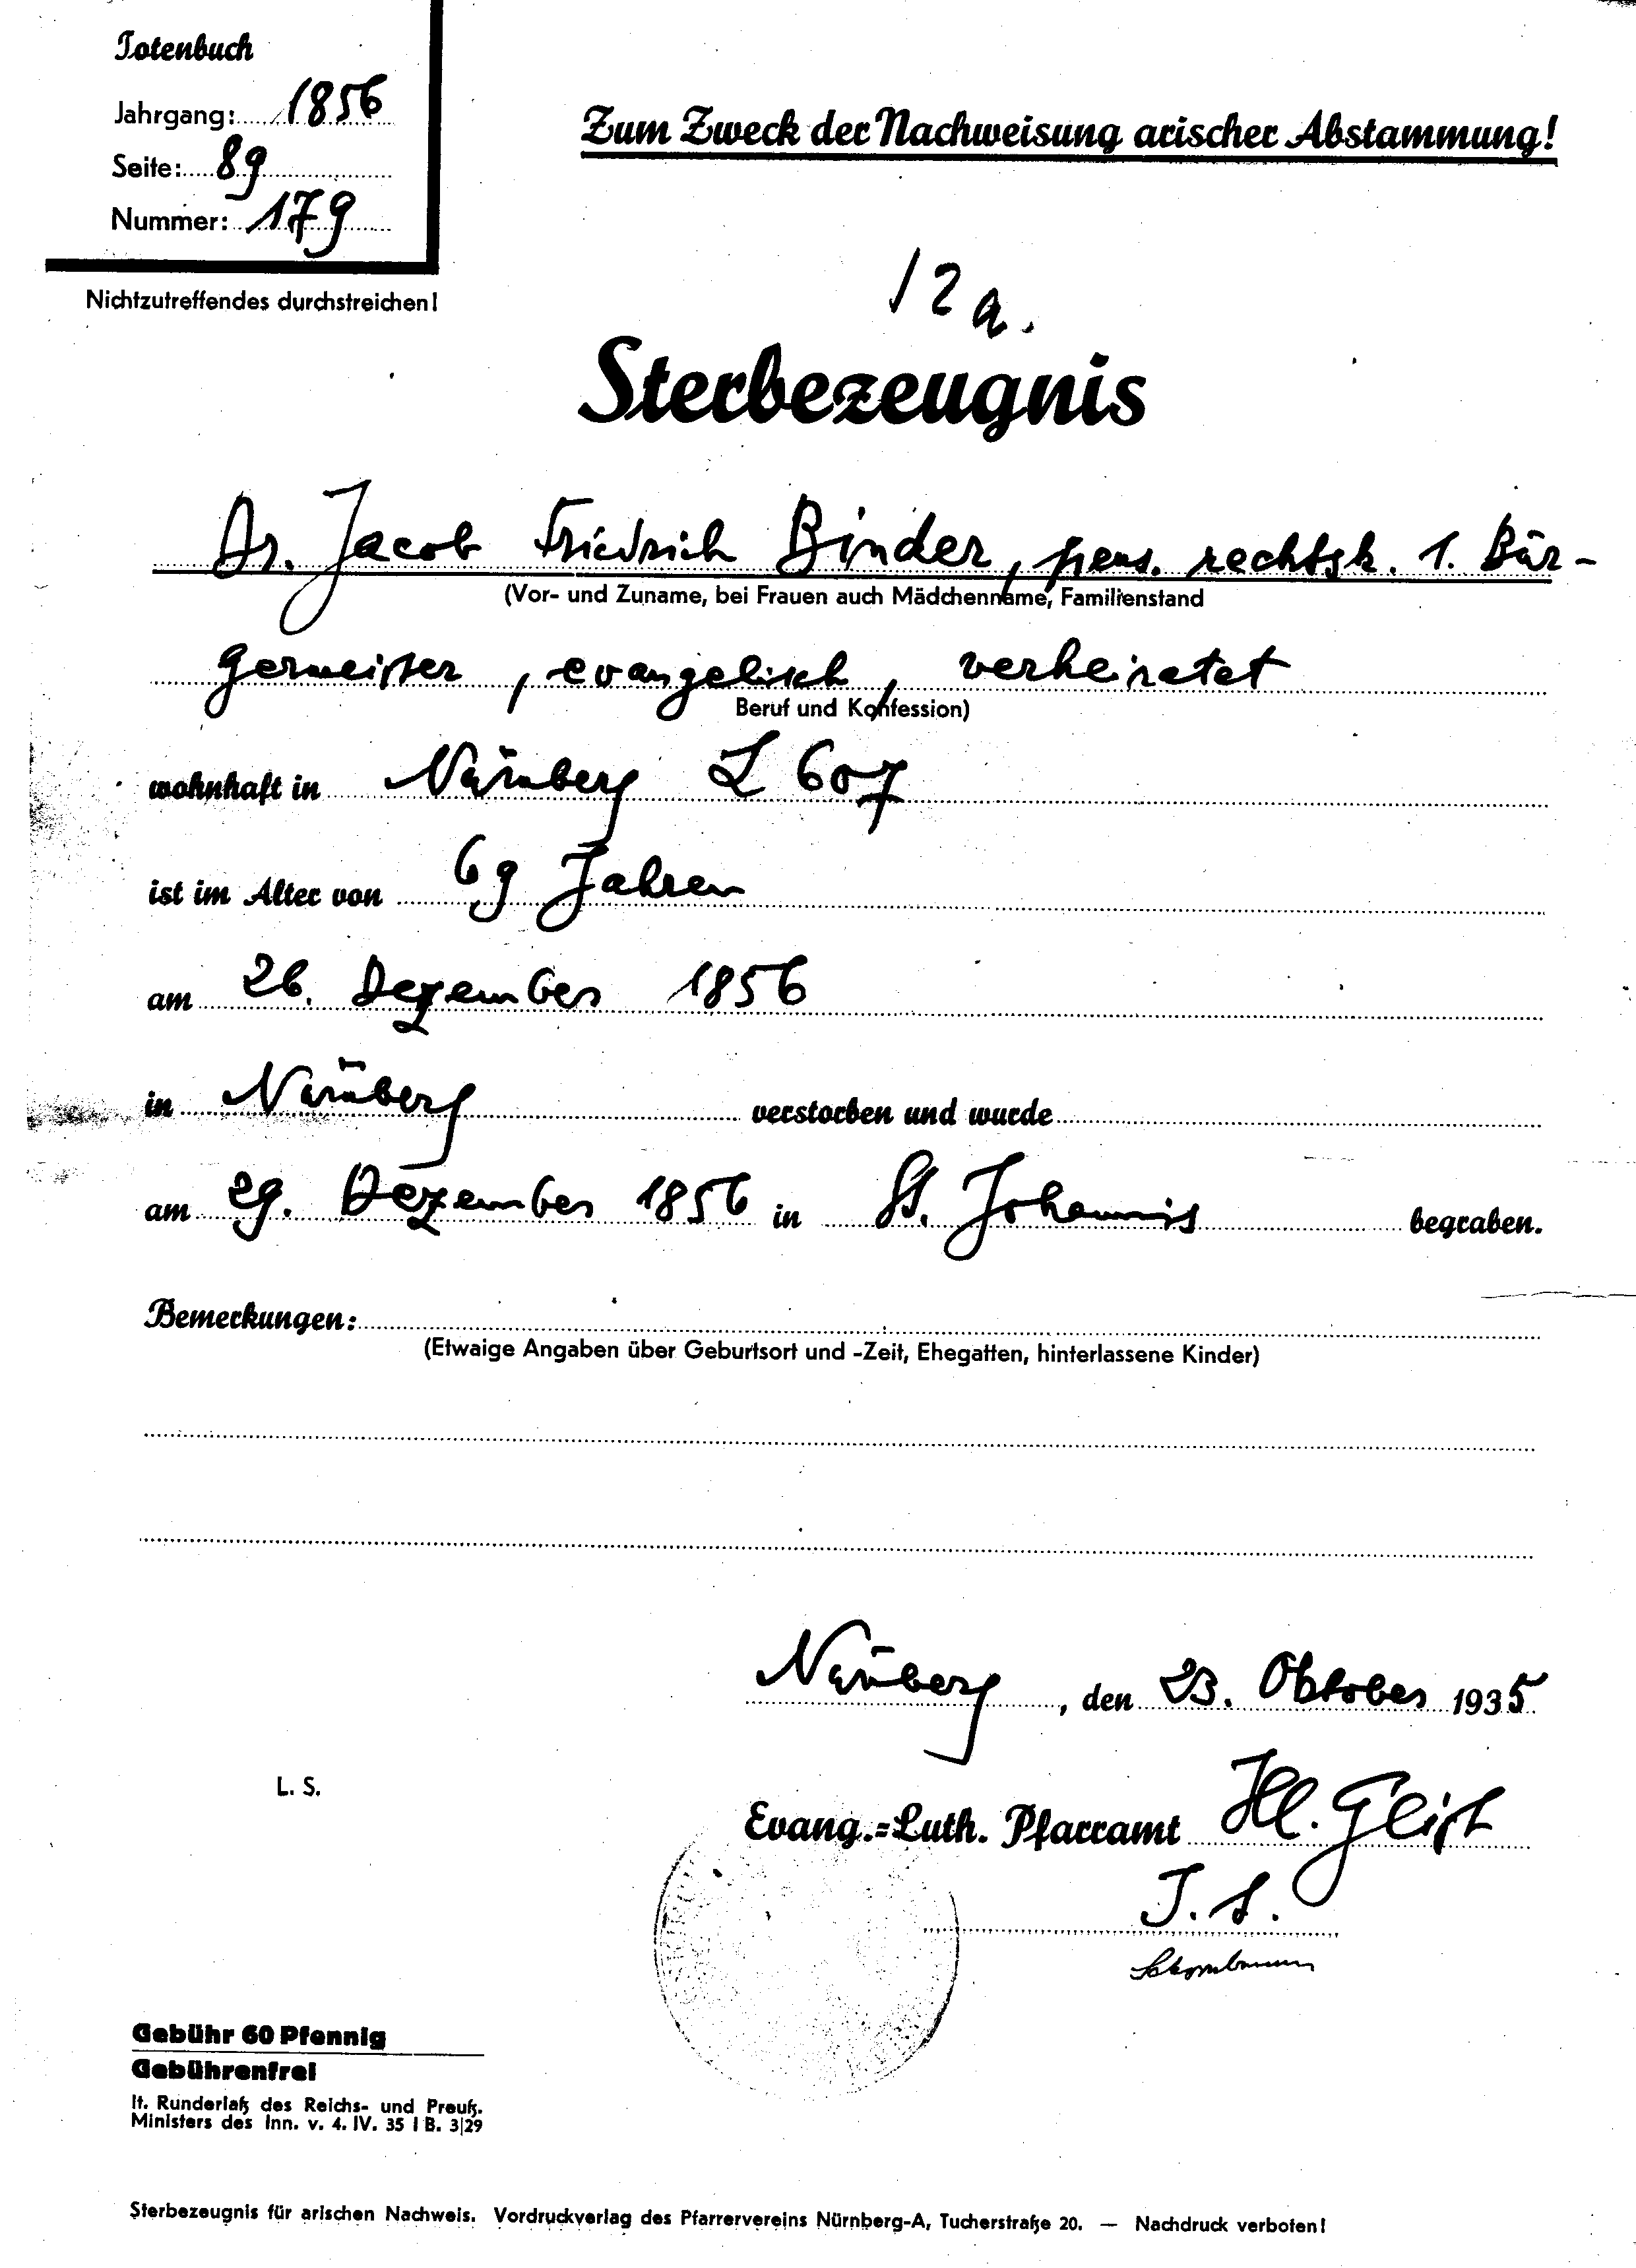 Totenbuch
Jahrgang: 1856
Seite: 89
Nummer: 179
Nichtzutreffendes durchstreichen!
Zum Zweck der Nachweisung arischer Abstammung!
12 a.
Sterbezeugnis
Dr. Jacob Friedrich Binder, pens. rechtsk. 1. Bür-
(Vor- und Zuname, bei Frauen auch Mädchenname, Familienstand
germeister, evangelisch, verheiratet
Beruf und Konfession)
wohnhaft in Nürnberg L 607
ist im Alter von 69 Jahren
am 26. Dezember 1856
in Nürnberg verstorben und wurde
am 29. Dezember 1856 in St. Johannis begraben.
Bemerkungen:
(Etwaige Angaben über Geburtsort und -Zeit, Ehegatten, hinterlassene Kinder)
Nürnberg, den 23. Oktober 1935
L. S.
Evang.=Luth. Pfarramt Hl. Geist
Gebühr 60 Pfennig
Gebührenfrei
lt. Runderlaß des Reichs- und Preuß.
Ministers des Inn. v. 4. IV. 35 I B. 3|29
Sterbezeugnis für arischen Nachweis. Vordruckverlag des Pfarrervereins Nürnberg-A, Tucherstraße 20. — Nachdruck verboten!